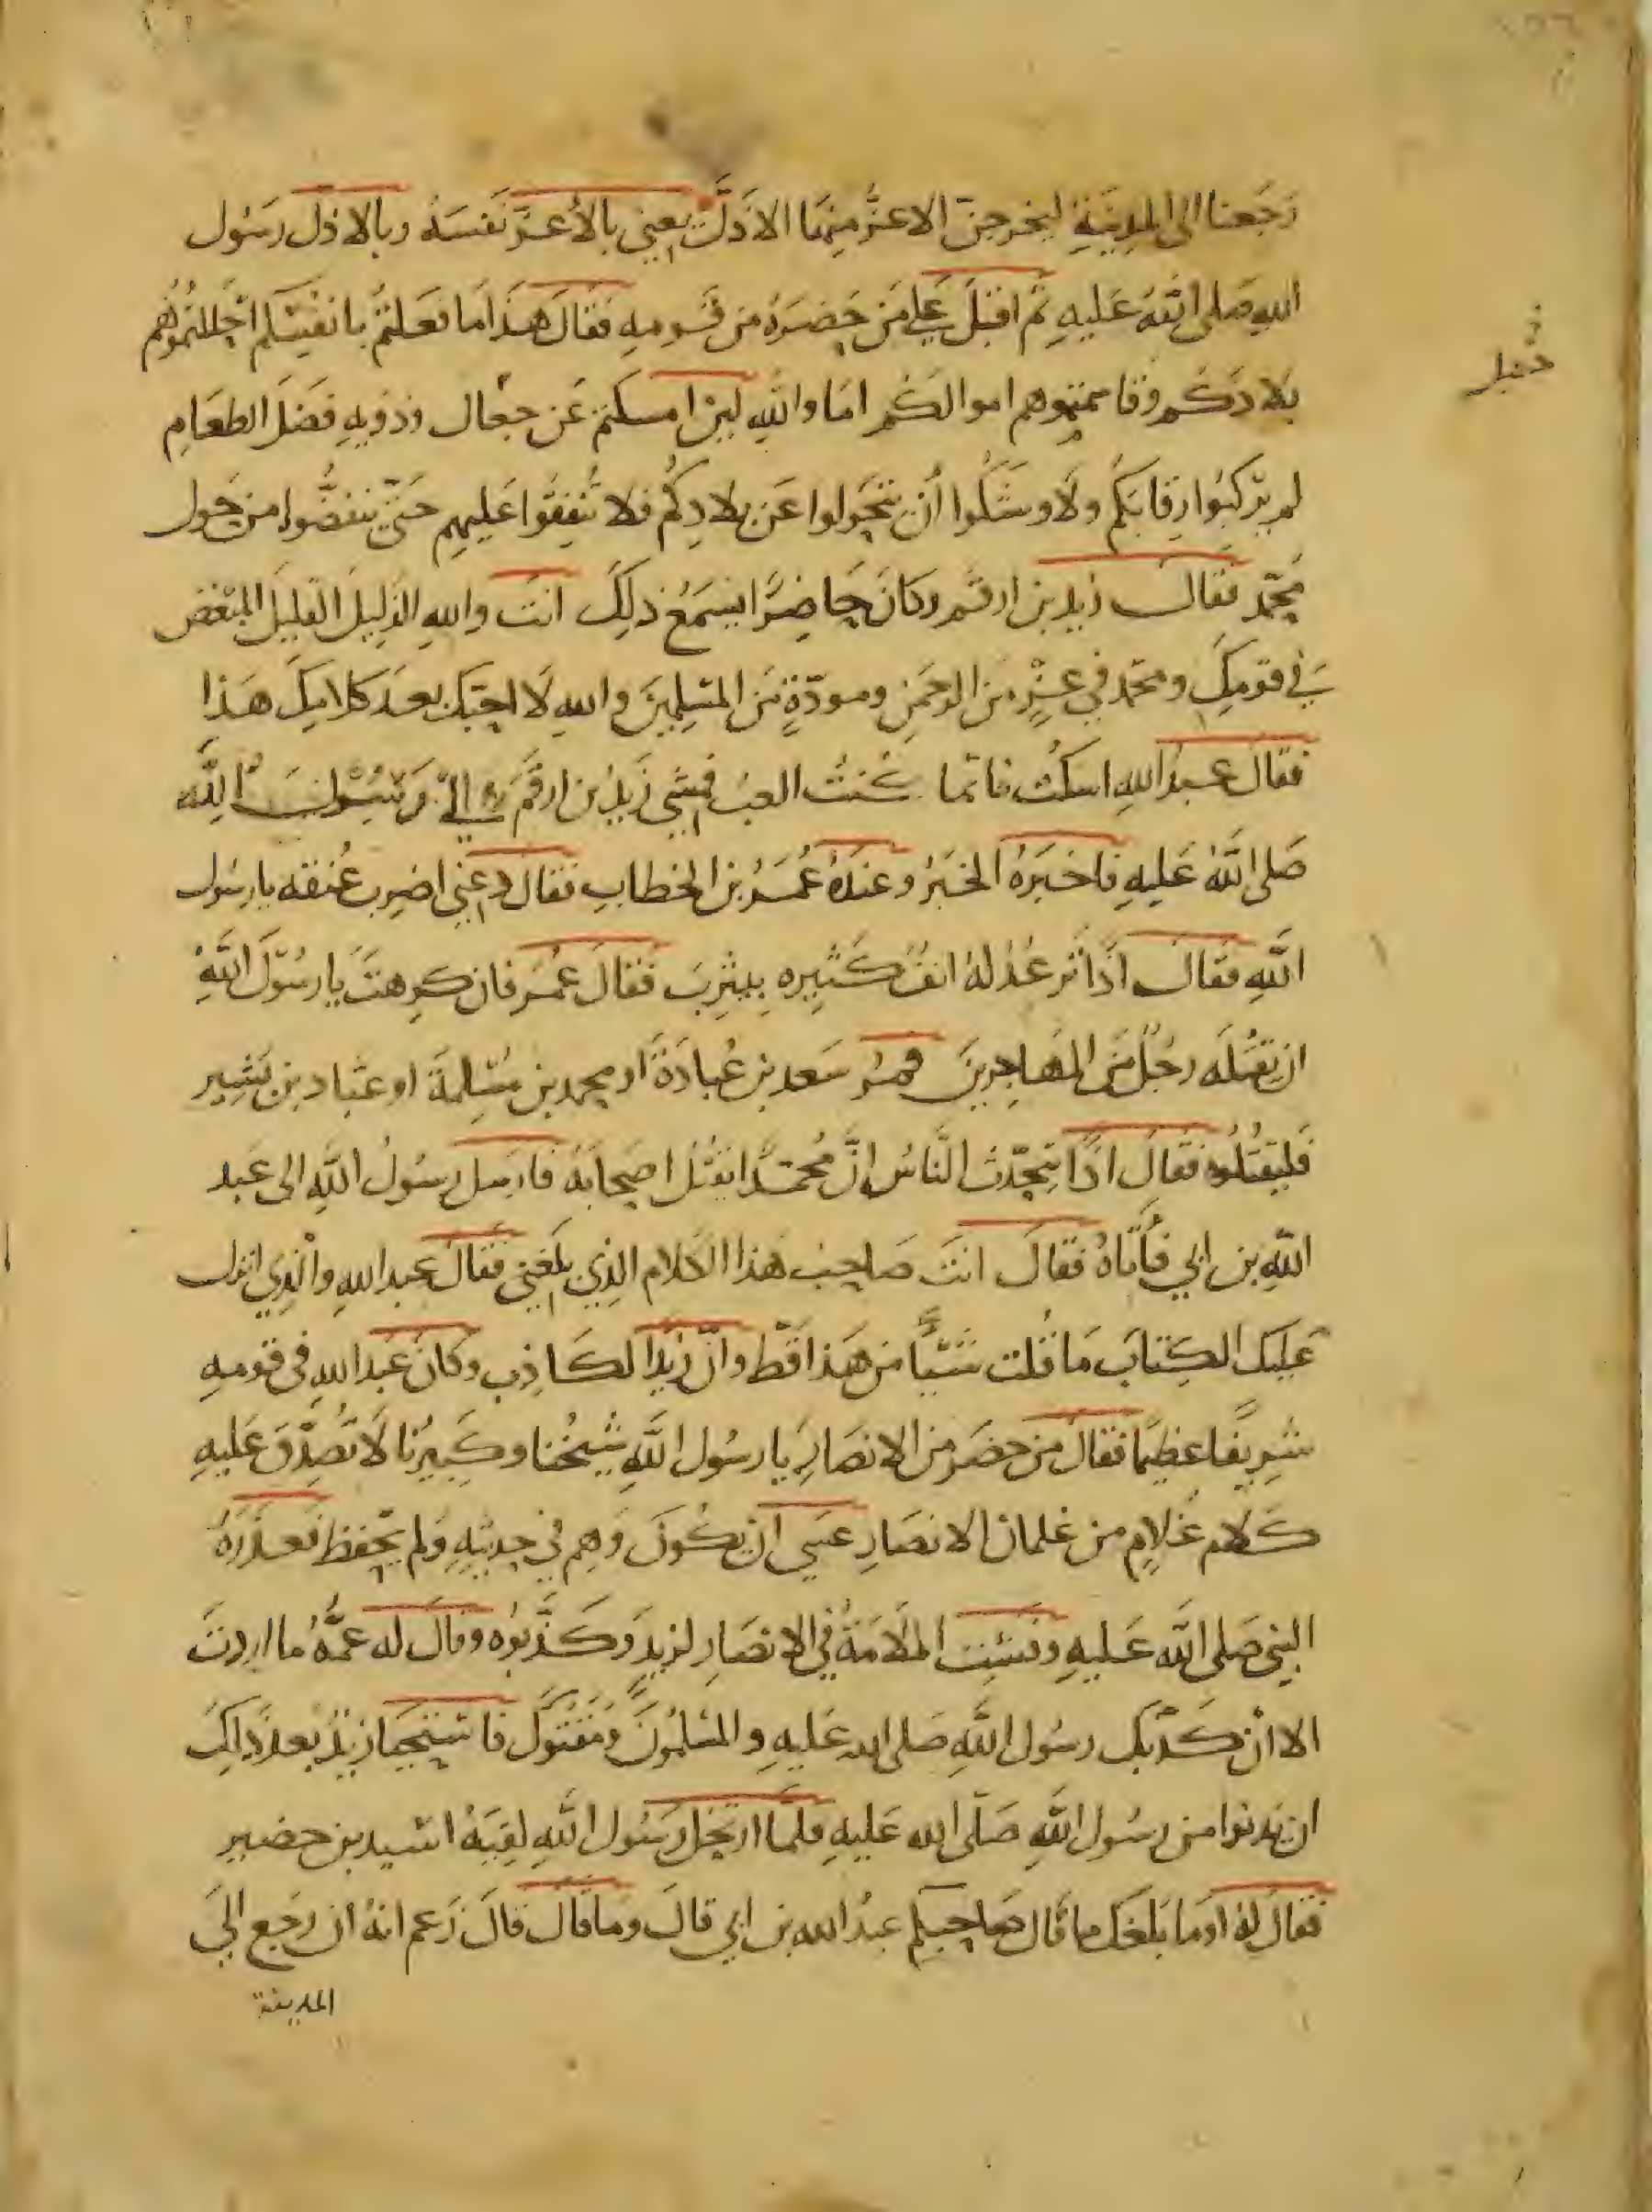 رَجَعنا الى المدِينَةِ ليخرجنّ الاعزُّ مِنهَا الاذَلَّ يعني بالأعزّ نَفسَهُ وبالاذلّ رسُول
اللهِ صَلى اللهُ عَليهِ ثم اقبَلَ عَلى مَن حَضَرَهُ من قَومِهِ فقَالَ هذَا مَا فعَلتمُ بانفُسِكم احْللتمُوُهم
بلادَكُم وقاسمتموهم اموالكُم امَا واللهِ لين امسكتم عَن جعَال وذويهِ فَضلَ الطعَامِ
لم يَرْكبُوا رقابكُم ولَاوشَكُوا أن يتحَولوا عَن بلادِكُم فلا تُنفِقُوا عَليهم حَتّى ينفضُّوا من حَول
مُحَمّد فقالَ زيد بن ارقم وكانَ حَاضِرًا يسمَعُ ذلِكَ انتَ واللهِ الذَلِيلَ القَلِيلَ المبْغض
في قومِكَ ومحَمّد في عِزٍّ من الرحمَنِ ومودّةٍ مَن المسْلِمينَ واللهِ لَا احبّك بعدَ كلامِكَ هَذا
فقالَ عَبدُ اللهِ اسكُت فانّما كُنتُ العبُ فمشَى زَيدُ بن ارقَم الىَ رَسُولَ اللهِ
صَلى اللهُ عَليهِ فاخبَرهُ الخَبَرُ وعندَهُ عُمَرُ بن الخطابِ فقَال دعني اضرِب عُنقه يا رسُول
اللهِ فقالَ اذًا تُرعدُ لهُ انفُ كَثيِره بِيثرِبَ فقَالَ عُمَر فان كرِهتَ يا رسُولَ اللهِ
ان يقتُلَه رجُلٌ مَن المهَاجرينَ فمُر سَعد بن عُبادَةَ او محمد بن مسْلِمةَ او عبّاد بن بَشِير
فَليقتُلُوه فقَالَ اذًا يتحدّث النَّاسُ انَّ مُحمّدًا يقتُلُ اصحَابَهُ فارسَل رسُولُ اللهِ الى عَبد
اللهِ بن ابي فأَتَاهُ فقَالَ انتَ صَاحِبُ هَذا الكَلام الذِي بلَغني فقَالَ عبد اللهِ والّذِي انزل
عَليكَ الكِتابَ مَا قُلت شَيئًا من هَذا قَطّ وانّ زَيدًا لكَاذِب وكَانَ عَبد اللهِ في قومِهِ
شرِيفًا عظيمًا فقَالَ من حضَر من الانصَارِ يا رسُول اللهِ شَيخُنا وكَبيرُنا لَا تُصدِّقْ عَليهِ
كَلَام غُلامٍ من غلمان الانصَارِ عسَى ان يكُونَ وَهِم في حدِيثهِ وَلم يحفظ فعذَرَهُ
النبي صَلى اللهُ عَليهِ وفَشَت المَلَامَةُ في الانصَارِ لزيدٍ وَكَذَّبوُه وقالَ له عمَّهُ ما اردتَ
الا انْ كَذّبكَ رسُول اللهِ صَلى الله عَليهِ والمسْلمُونَ ومَقَتُوكَ فاستَحيَا زيدٌ بعدَ ذَلِكَ
ان يَدنوا من رسُول اللهِ صَلّى الله عَليهِ فلمّا ارتحَلَ رسُول اللهِ لقِيَهُ اسَيد بن حضير
فقَالَ لهُ اوَما بَلغكَ ما قَال صَاحبكم عبدُ الله بن ابي قالَ وما قَالَ قَالَ زَعم انهُ ان رجَع الىَ
المدينة